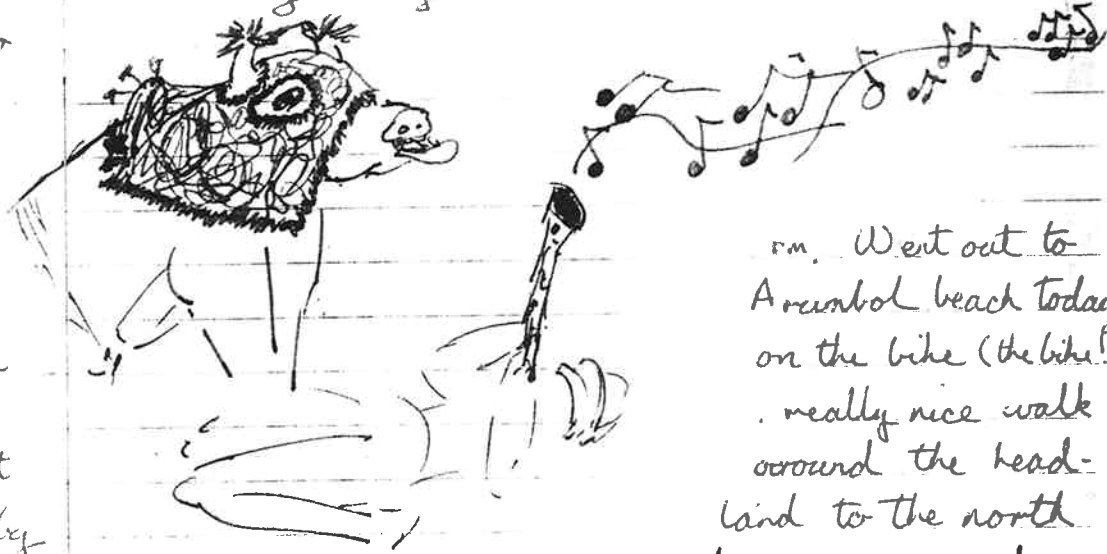 rm. Went out to
Arambol beach today
on the bike (the bike!
. really nice walk
around the head-
land to the north